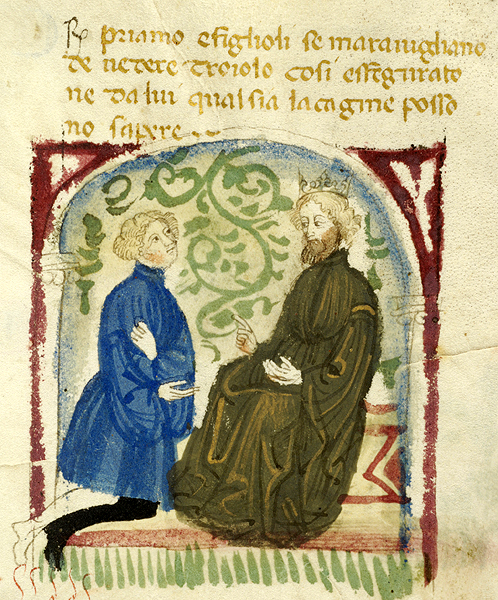 Re priamo efiglioli se marauigliano
de uedere troiolo cosi esfigurato
ne da lui qual sia lacagine posso
no sapere